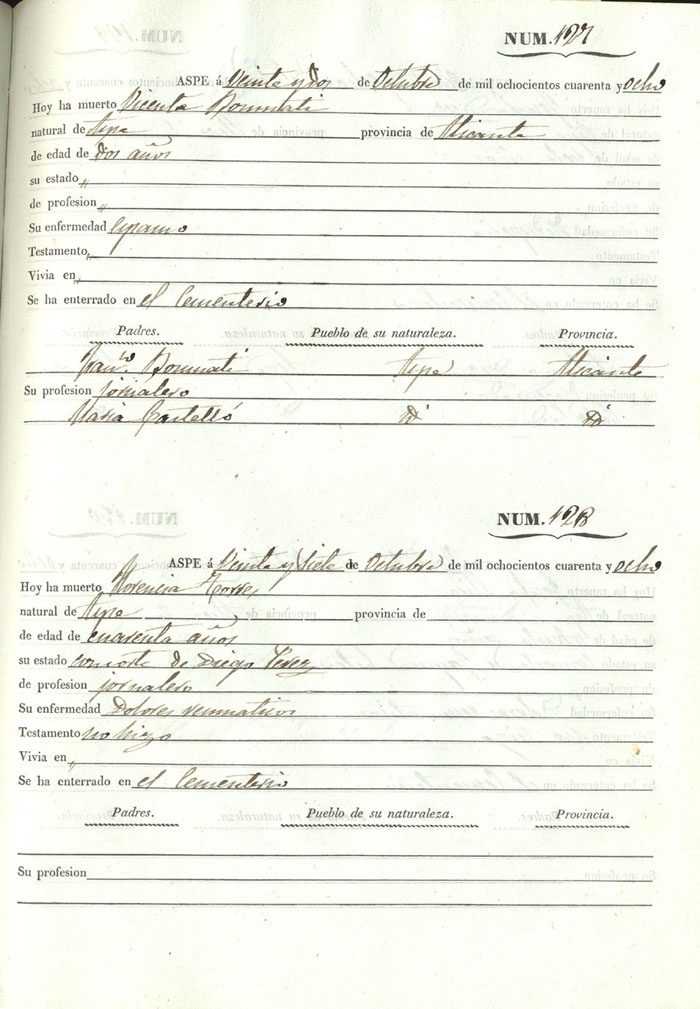 NUM. 127
ASPE á Veinte y Dos de Octubre de mil ochocientos cuarenta y ocho
Hoy ha muerto Vicenta Bonmati
natural de Aspe provincia de Alicante
de edad de Dos años
su estado "
de profesion "
Su enfermedad espasmo
Testamento "
Vivia en "
Se ha enterrado en el Cementerio
Padres. Pueblo de su naturaleza. Provincia.
Franco. Bonmati Aspe Alicante
Su profesion jornalero
Maria Castelló Id Id
NUM. 128
ASPE á Veinte y Siete de Octubre de mil ochocientos cuarenta y ocho
Hoy ha muerto Florencia Torres
natural de Aspe provincia de
de edad de cuarenta años
su estado consorte de Diego Perez
de profesion jornalero
Su enfermedad Dolores reumaticos
Testamento no hizo
Vivia en "
Se ha enterrado en el Cementerio
Padres. Pueblo de su naturaleza. Provincia.
Su profesion